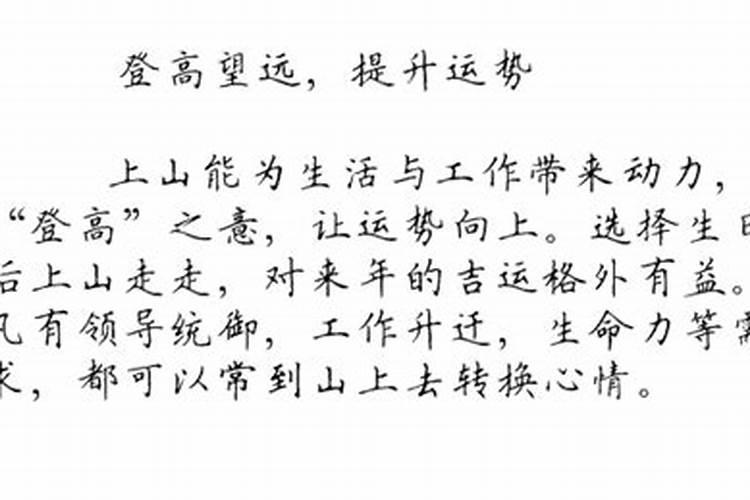 登高望远，提升运势
上山能为生活与工作带来动力，
“登高”之意，让运势向上。选择生日
后上山走走，对来年的吉运格外有益。
凡有领导统御，工作升迁，生命力等需
求，都可以常到山上去转换心情。